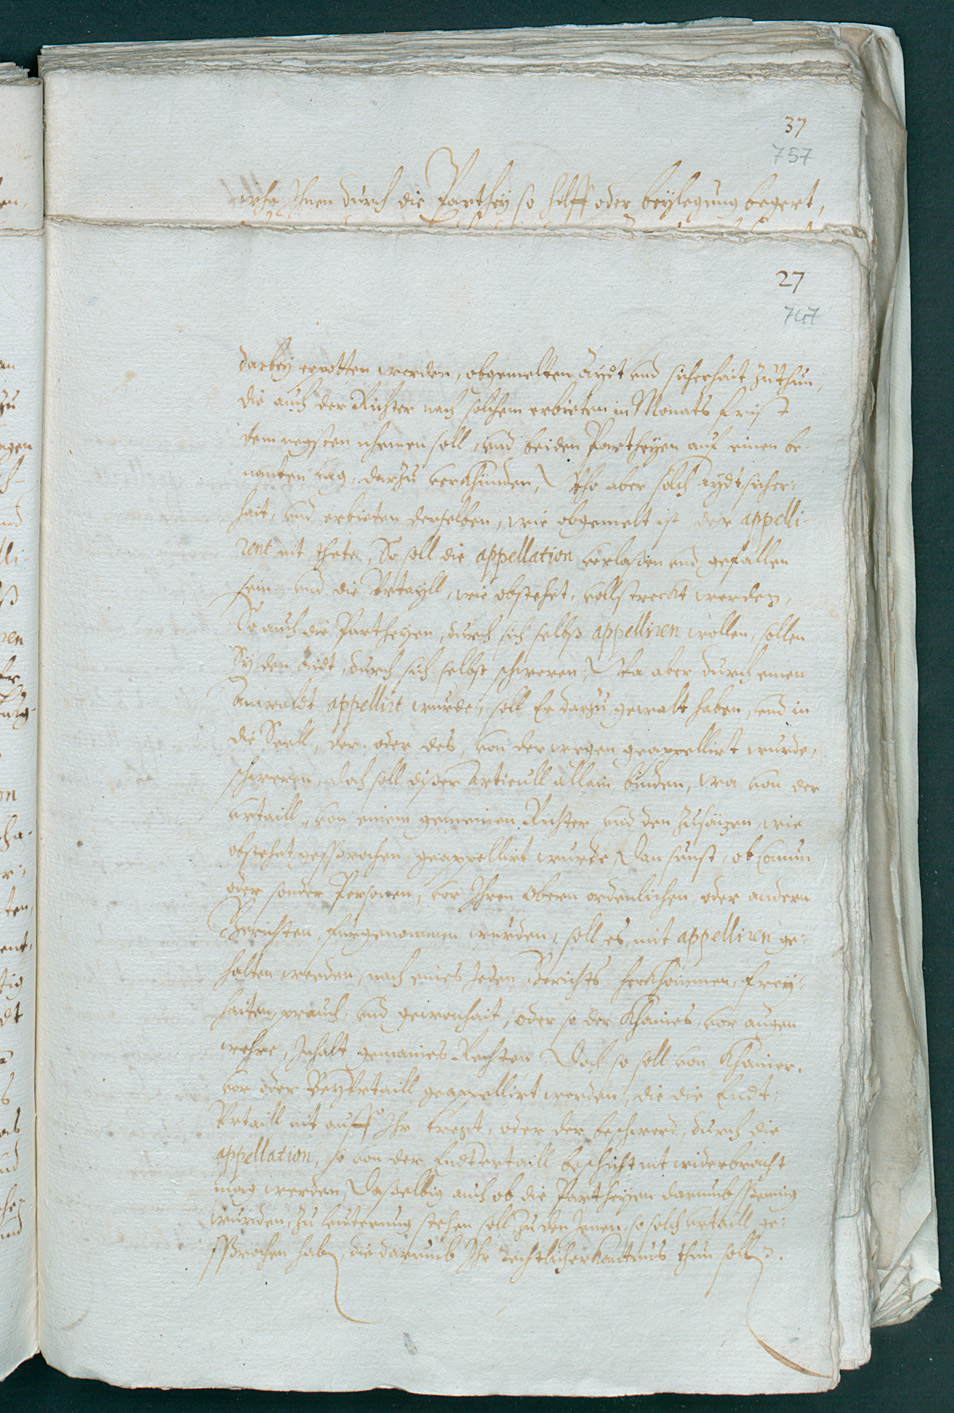 37
757
ihnen durch die Parthey so hilff oder beylegung begert,
27
747
darbey erpotten werden, obgemelten aydt und sicherhait zuthun,
die auch der Richter nach solchem erbieten in Monats frist
dem negsten nhemen soll, und beiden Partheyen auch einen be-
nanten tag, darzu verkhünden, Who aber solch aydt, sicher-
hait, und erbieten derselben, wie obgemelt ist der appelli-
rent nit thete, So soll die appellation verlaßen und gefallen
sein, und die Vrtayll, wie obstehet, vollstreckt werden,
So auch die Partheyen, durch sich selbs appelliren wollen, sollen
Sy den aidt, durch sich selbst schweren, Wa aber durch einen
anwaldt appellirt wurde, soll Er darzu gewalt haben, und in
die Seell, der, oder des, von der wegen geappellirt wurde,
schweren, doch soll diser Articull allain binden, wa von der
vrtaill, von einem gemeinen Richter und den Zusäzen, wie
obstehet gesprochen, geappellirt wurde, Dan sunst, ob Comun
oder sonder Personen, vor Ihren Obern ordenlichen, oder andern
Gerichten, fürgenommen wurden, soll es, mit appelliren ge-
halten werden, nach eines Jeden Gerichts herkhommen, frey-
haiten, prauch, und gewonhait, oder so der khaines, vor augen
wehre, Inhalt gemaines Rechten, Doch so soll von khainer,
vor oder Beyvrtaill geappellirt werden, die die Endt-
Vrtaill nit auff Ihr tregt, oder der beschwerd, durch die
appellation, so von der Endtvrtaill beschicht nit widerbracht
mag werden, Daßelbig auch ob die Partheyen darumb spennig
wurden, zu leuterung stehen soll, zu den Jenen, so solch vrtaill ge-
sprochen haben, die darumb Ihr rechtlich erkandtnus thun sollen.